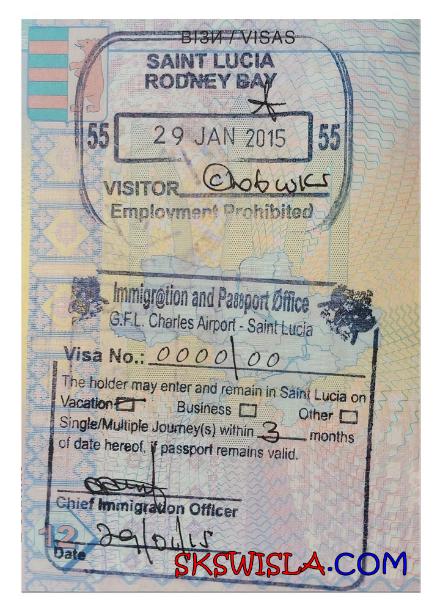 ВІЗИ / VISAS
SAINT LUCIA
RODNEY BAY
55 29 JAN 2015 55
VISITOR
Employment Prohibited
Immigration and Passport Office
G.F.L. Charles Airport - Saint Lucia
Visa No.: 0000/00
The holder may enter and remain in Saint Lucia on
Vacation Business Other
Single/Multiple Journey(s) within 3 months
of date hereof, if passport remains valid.
Chief Immigration Officer
12
Date 29/01/15
SKSWISLA.COM